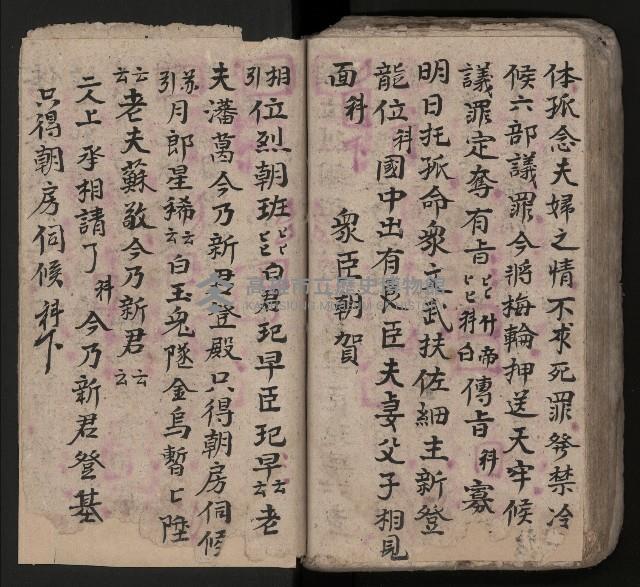 体孤念夫婦之情不求死罪發禁冷
候六部議罪今將梅輪押送天牢候
議罪定奪有旨匕匕廾帝傳旨科寡
匕匕科白
明日托孤命衆文武扶佐細主新登
龍位科國中出有良臣夫妻父子相見
面科
衆臣朝賀
相引位烈朝班匕匕白君玘早臣玘早云云老
夫潘葛今乃新君登殿只得朝房伺候
蘇引月郎星稀云云白玉兔隊金烏暫匕陞
云云老夫蘇敬今乃新君云云
二人上丞相請了科今乃新君登基
只得朝房伺候科下
高雄市立歷史博物館
KAOHSIUNG MUSEUM OF HISTORY